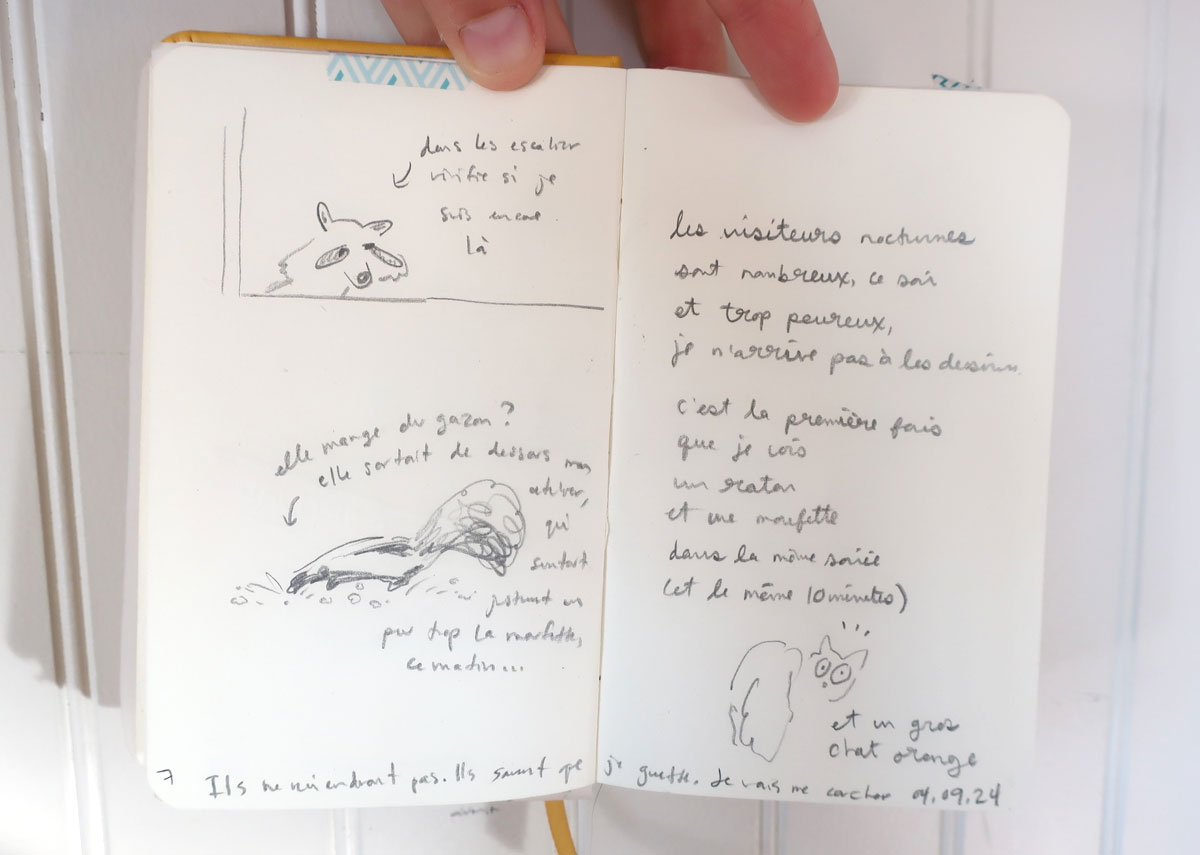 dans les escalier
vérifie si je
suis encore
là
elle mange du gazon?
elle sortait de dessous mon
qui
sentait
justement un
peu trop la moufette,
ce matin...
les visiteurs nocturnes
sont nombreux, ce soir
et trop peureux,
je n'arrive pas à les dessiner.
c'est la première fois
que je vois
un raton
et une moufette
dans la même soirée
(et le même 10 minutes)
et un gros
chat orange
7 Ils ne reviendront pas. Ils savent que je guette. Je vais me coucher 04.09.24